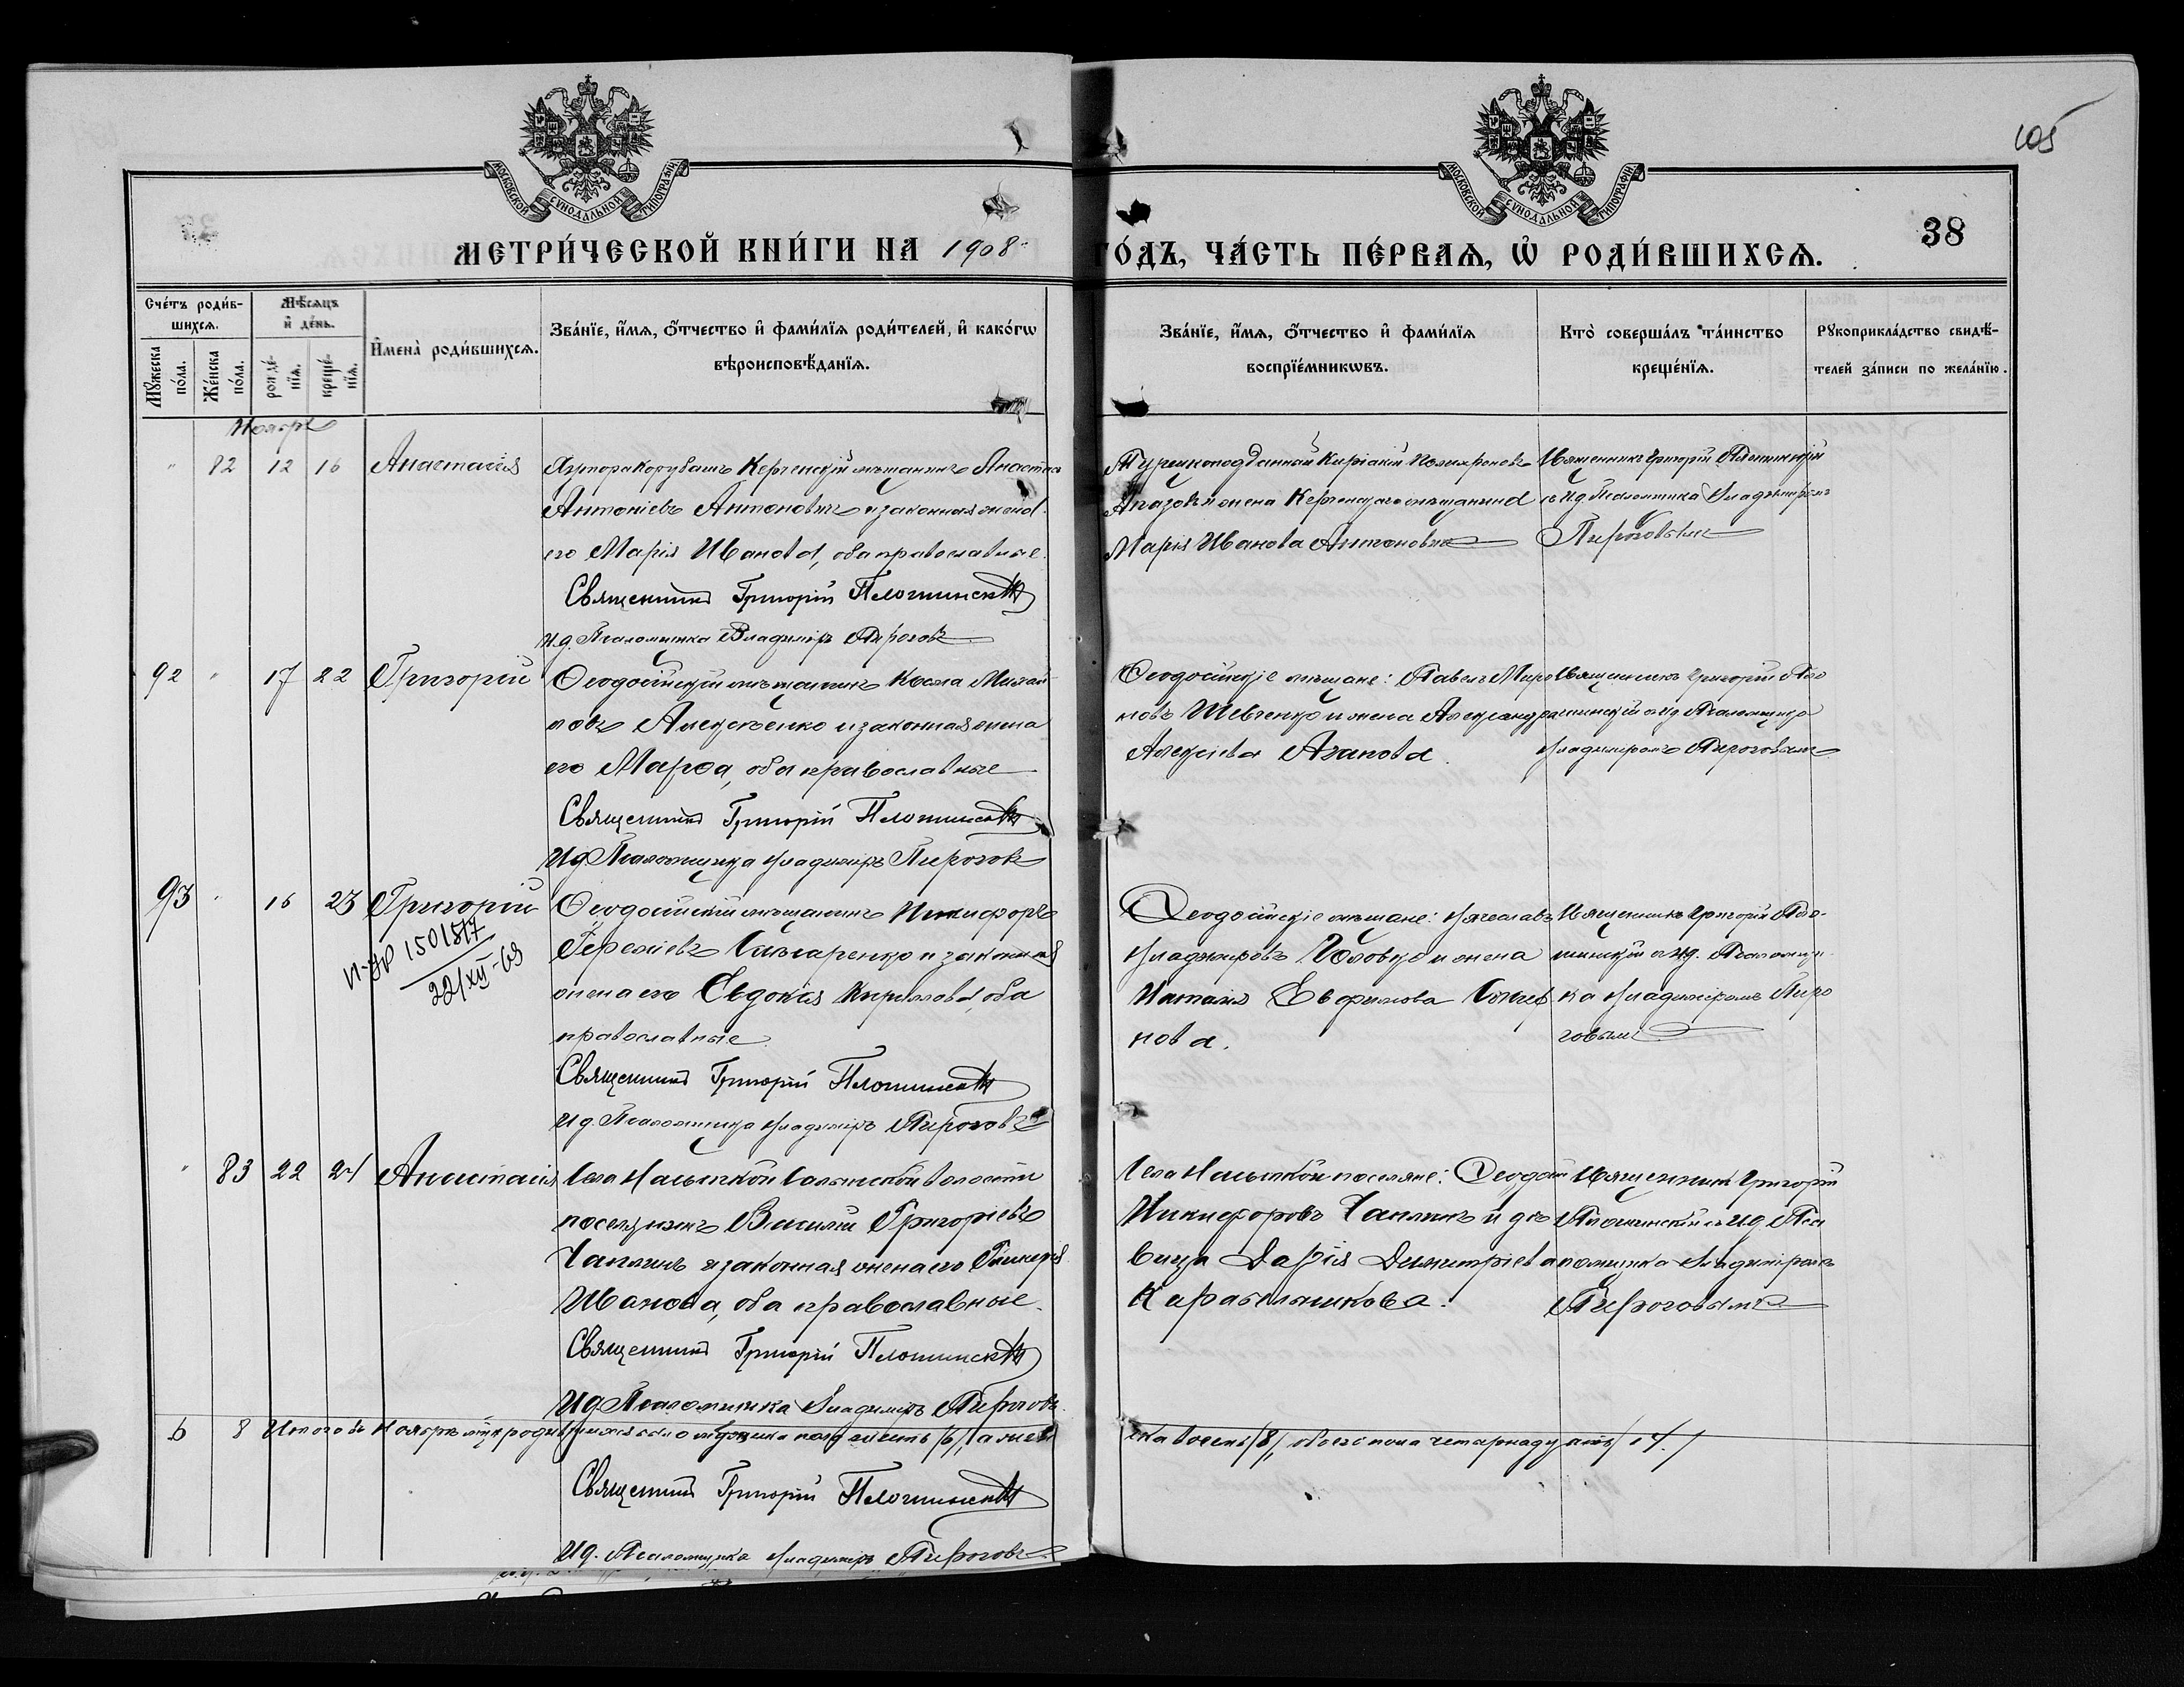 105
МОСКОВСКОЙ СѴНОДАЛЬНОЙ ТИПОГРАФІИ
МОСКОВСКОЙ СѴНОДАЛЬНОЙ ТИПОГРАФІИ
МЕТРИ́ЧЕСКОЙ КНИ́ГИ НА 1908 ГО́ДЪ, ЧА́СТЬ ПЕ́РВАѦ, Ѡ҆ РОДИ́ВШИХСѦ.
38
Сче́тъ роди́в-
шихсѧ.
Мꙋжеска
по́ла.
Же́нска
по́ла.
Мѣ́сѧцъ
и҆ де́нь.
рожде́-
нїѧ.
креще́-
нїѧ.
И҆мена̀ роди́вшихсѧ.
Зва́нїе, и҆́мѧ, ѻ҆́тчество и҆ фами́лїѧ роди́телей, и҆ како́гѡ
вѣроисповѣ́данїѧ.
Зва́нїе, и҆́мѧ, ѻ҆́тчество и҆ фами́лїѧ
воспрїе́мникѡвъ.
Кто̀ соверша́лъ та́инство
креще́нїѧ.
Рꙋкоприкла́дство свидѣ́-
телей за́писи по жела́нїю.
Ноябрь
" 82 12 16 Анастасія
Хутора Корубашъ Керченскій мѣщанинъ Анастас
Антоніевъ Антоновичъ и законная жена
его Марія Иванова, оба православные.
Священникъ Григорій Плотинскій
И.д. Псаломщика Владиміръ Пироговъ
Турецкоподданный Киріакій
жена Керченскаго мѣщанина
Марія Иванова Антоновичъ
Священникъ Григорій Плотинскій
съ и.д. Псаломщика Владиміромъ
Пироговымъ
92 " 17 22 Григорій
Ѳеодосійскій мѣщанинъ Косма Михаи
ловъ Алексѣенко и законная жена
его Марѳа, оба православные
Священникъ Григорій Плотинскій
И.д. Псаломщика Владиміръ Пироговъ
Ѳеодосійскіе мѣщане: Павелъ Миро
новъ Шевченко и жена Александра
Алексіева Аганова.
Священникъ Григорій Пло
тинскій съ и.д. Псаломщика
Владиміромъ Пироговымъ
93 " 16 23 Григорій
И-ЯР 1501517
22/XII-69
Ѳеодосійскій мѣщанинъ Никифоръ
и законная
жена его Евдокія Кириллова, оба
православные.
Священникъ Григорій Плотинскій
И.д. Псаломщика Владиміръ Пироговъ
Ѳеодосійскіе мѣщане: Вячеславъ
Владиміровъ Головко и жена
Наталія Евфимова
нова.
Священникъ Григорій Пло-
тинскій съ и.д. Псаломщи
ка Владиміромъ Пиро
говымъ
" 83 22 24 Анастасія
Села Насыпкой Салынской волости
поселянинъ Василій Григорьевъ
Чаплинъ и законная жена его Гликерія
Иванова, оба православные.
Священникъ Григорій Плотинскій
И.д. Псаломщика Владиміръ Пироговъ
Села Насыпкой поселяне: Ѳеодосій
Никифоровъ Чаплинъ и дѣ
вица Дарія Димитріева
Карабельникова.
Священникъ Григорій
Плотинскій съ и.д. Пса
ломщика Владиміромъ
Пироговымъ
6 8 Итого въ Ноябрѣ м-цѣ родившихся было мужеска пола шесть /6/, а женска восемь /8/, обоего пола четырнадцать /14/
Священникъ Григорій Плотинскій
И.д. Псаломщика Владиміръ Пироговъ